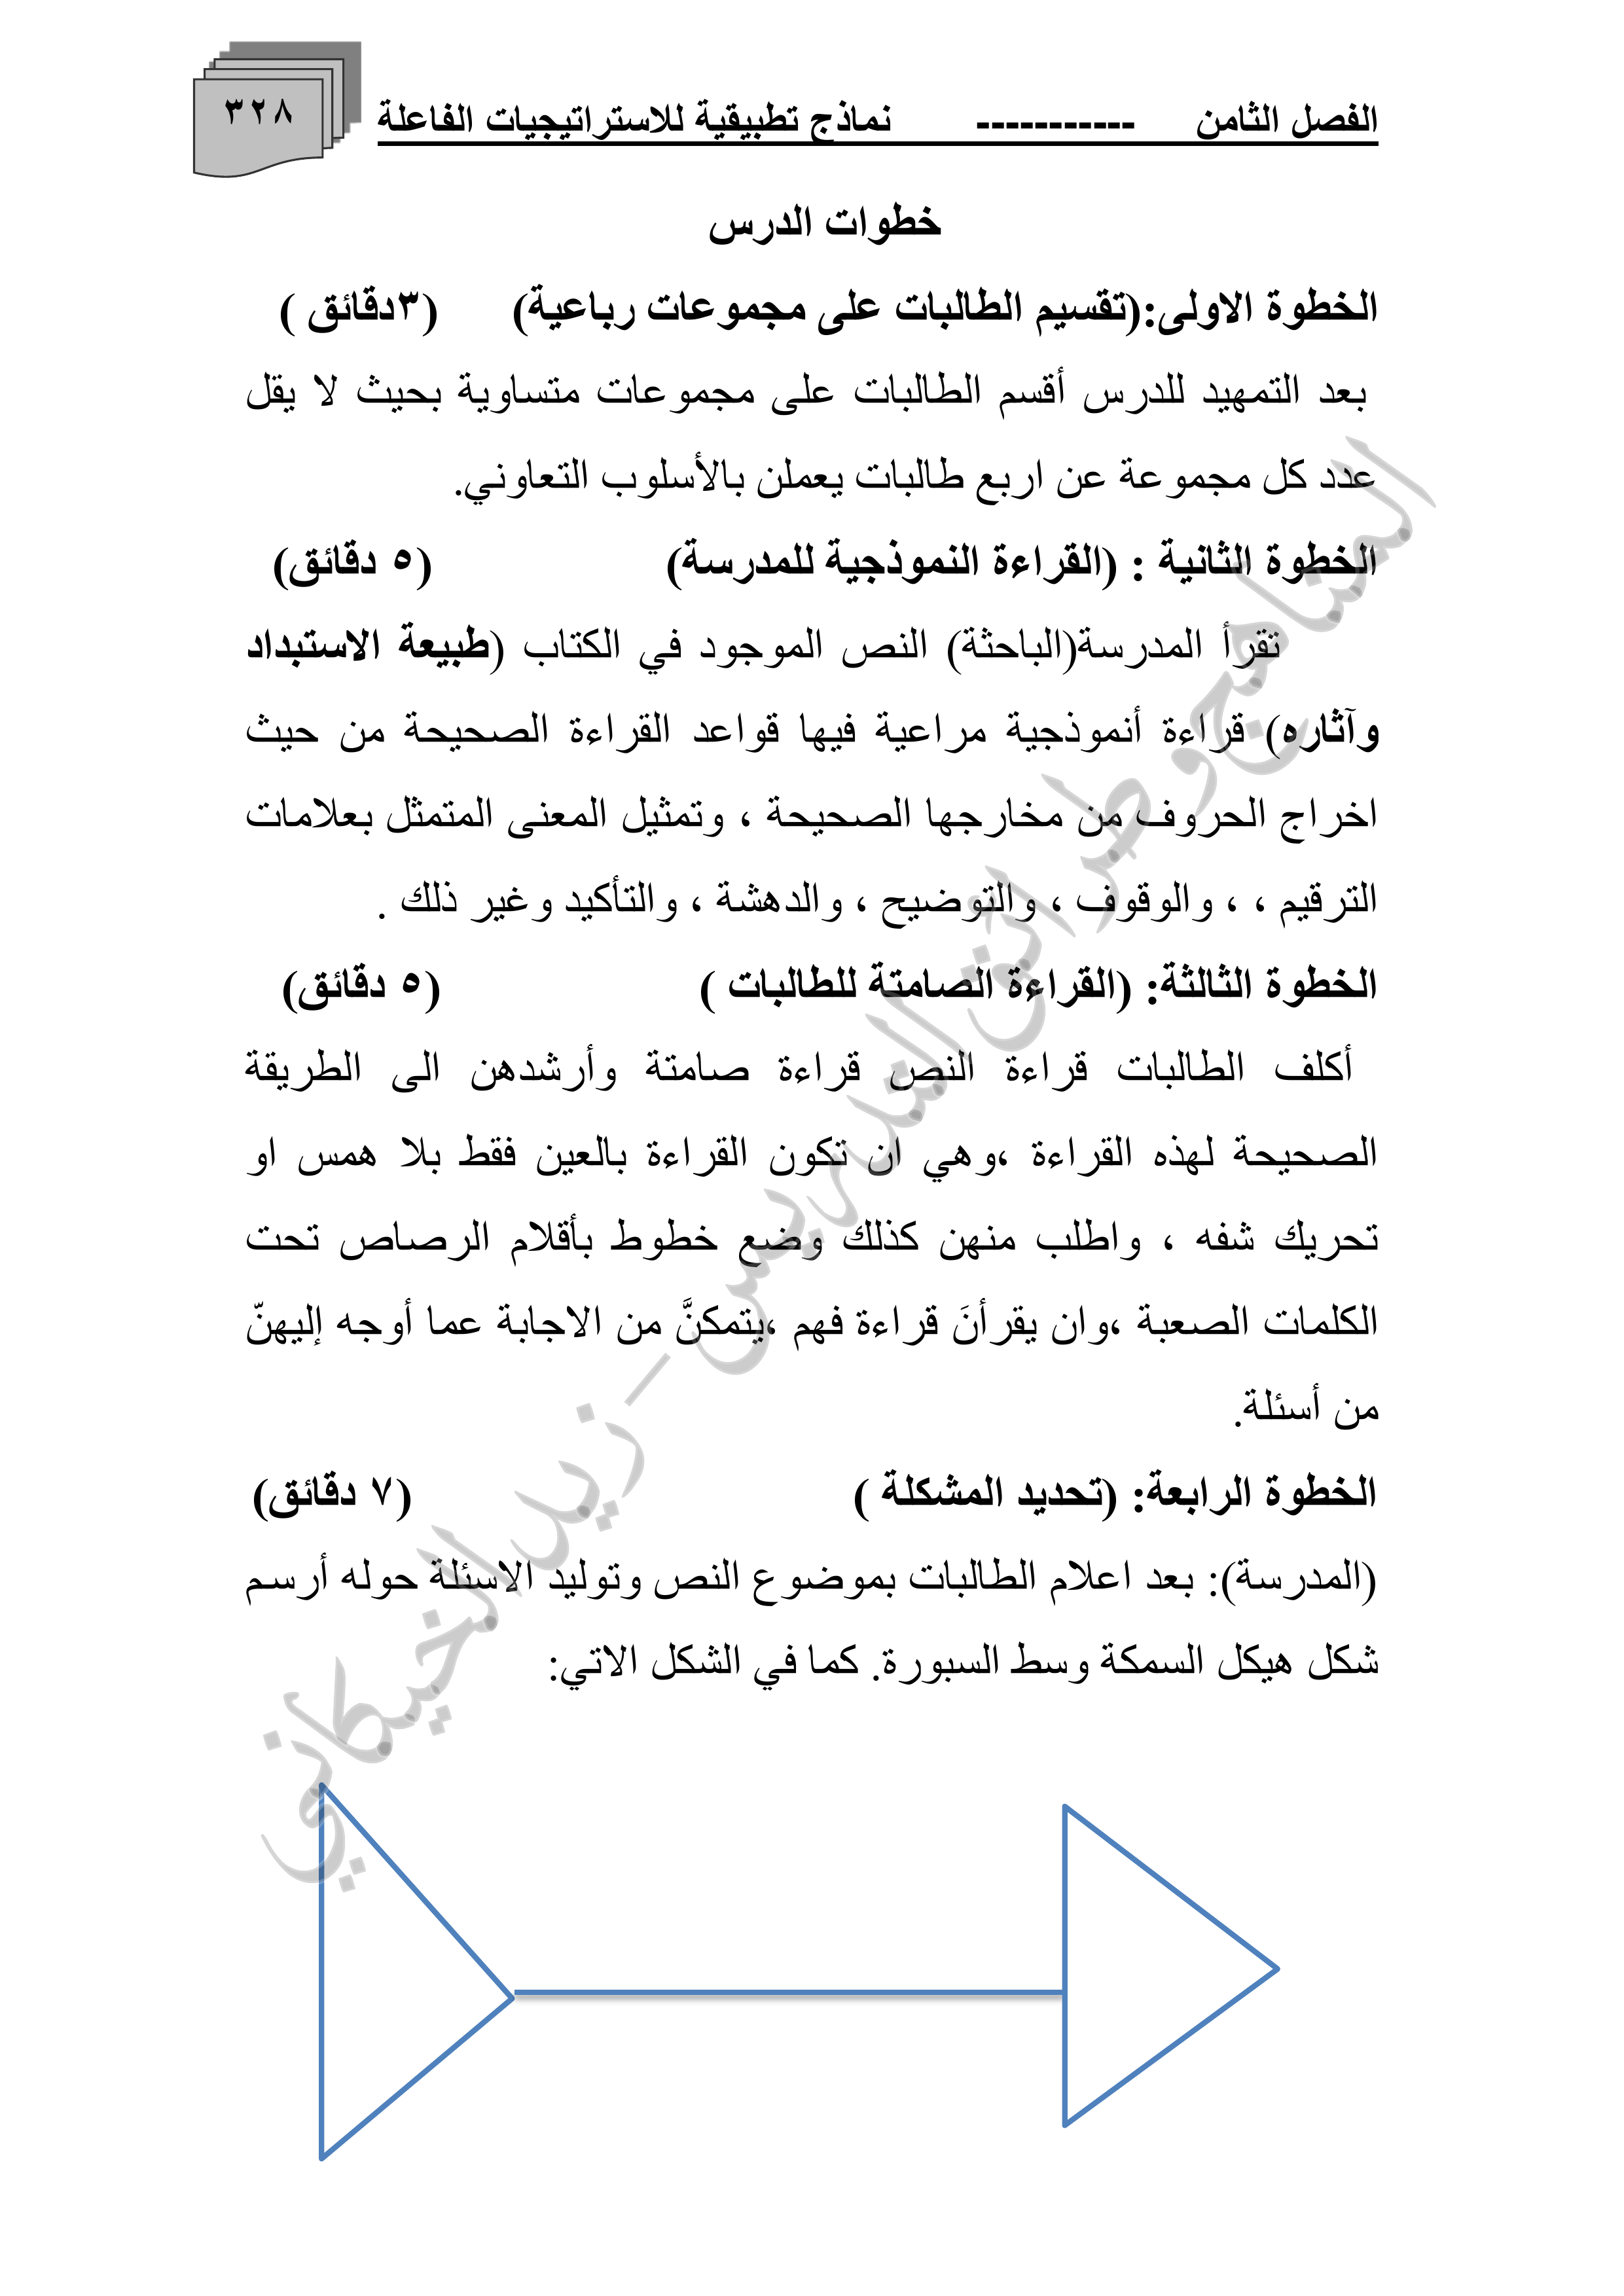 الفصل الثامن ----------- نماذج تطبيقية للاستراتيجيات الفاعلة
٣٢٨
خطوات الدرس
الخطوة الاولى:(تقسيم الطالبات على مجموعات رباعية) (٣دقائق )
بعد التمهيد للدرس أقسم الطالبات على مجموعات متساوية بحيث لا يقل
عدد كل مجموعة عن اربع طالبات يعملن بالأسلوب التعاوني.
الخطوة الثانية : (القراءة النموذجية للمدرسة) (٥ دقائق)
تقرأ المدرسة(الباحثة) النص الموجود في الكتاب (طبيعة الاستبداد
وآثاره) قراءة أنموذجية مراعية فيها قواعد القراءة الصحيحة من حيث
اخراج الحروف من مخارجها الصحيحة ، وتمثيل المعنى المتمثل بعلامات
الترقيم ، ، والوقوف ، والتوضيح ، والدهشة ، والتأكيد وغير ذلك .
الخطوة الثالثة: (القراءة الصامتة للطالبات ) (٥ دقائق)
أكلف الطالبات قراءة النص قراءة صامتة وأرشدهن الى الطريقة
الصحيحة لهذه القراءة ،وهي ان تكون القراءة بالعين فقط بلا همس او
تحريك شفه ، واطلب منهن كذلك وضع خطوط بأقلام الرصاص تحت
الكلمات الصعبة ،وان يقرأنَ قراءة فهم ،يتمكنَّ من الاجابة عما أوجه إليهنّ
من أسئلة.
الخطوة الرابعة: (تحديد المشكلة ) (٧ دقائق)
(المدرسة): بعد اعلام الطالبات بموضوع النص وتوليد الاسئلة حوله أرسم
شكل هيكل السمكة وسط السبورة. كما في الشكل الاتي:
المناهج وطرائق التدريس - زيد الخيكاني